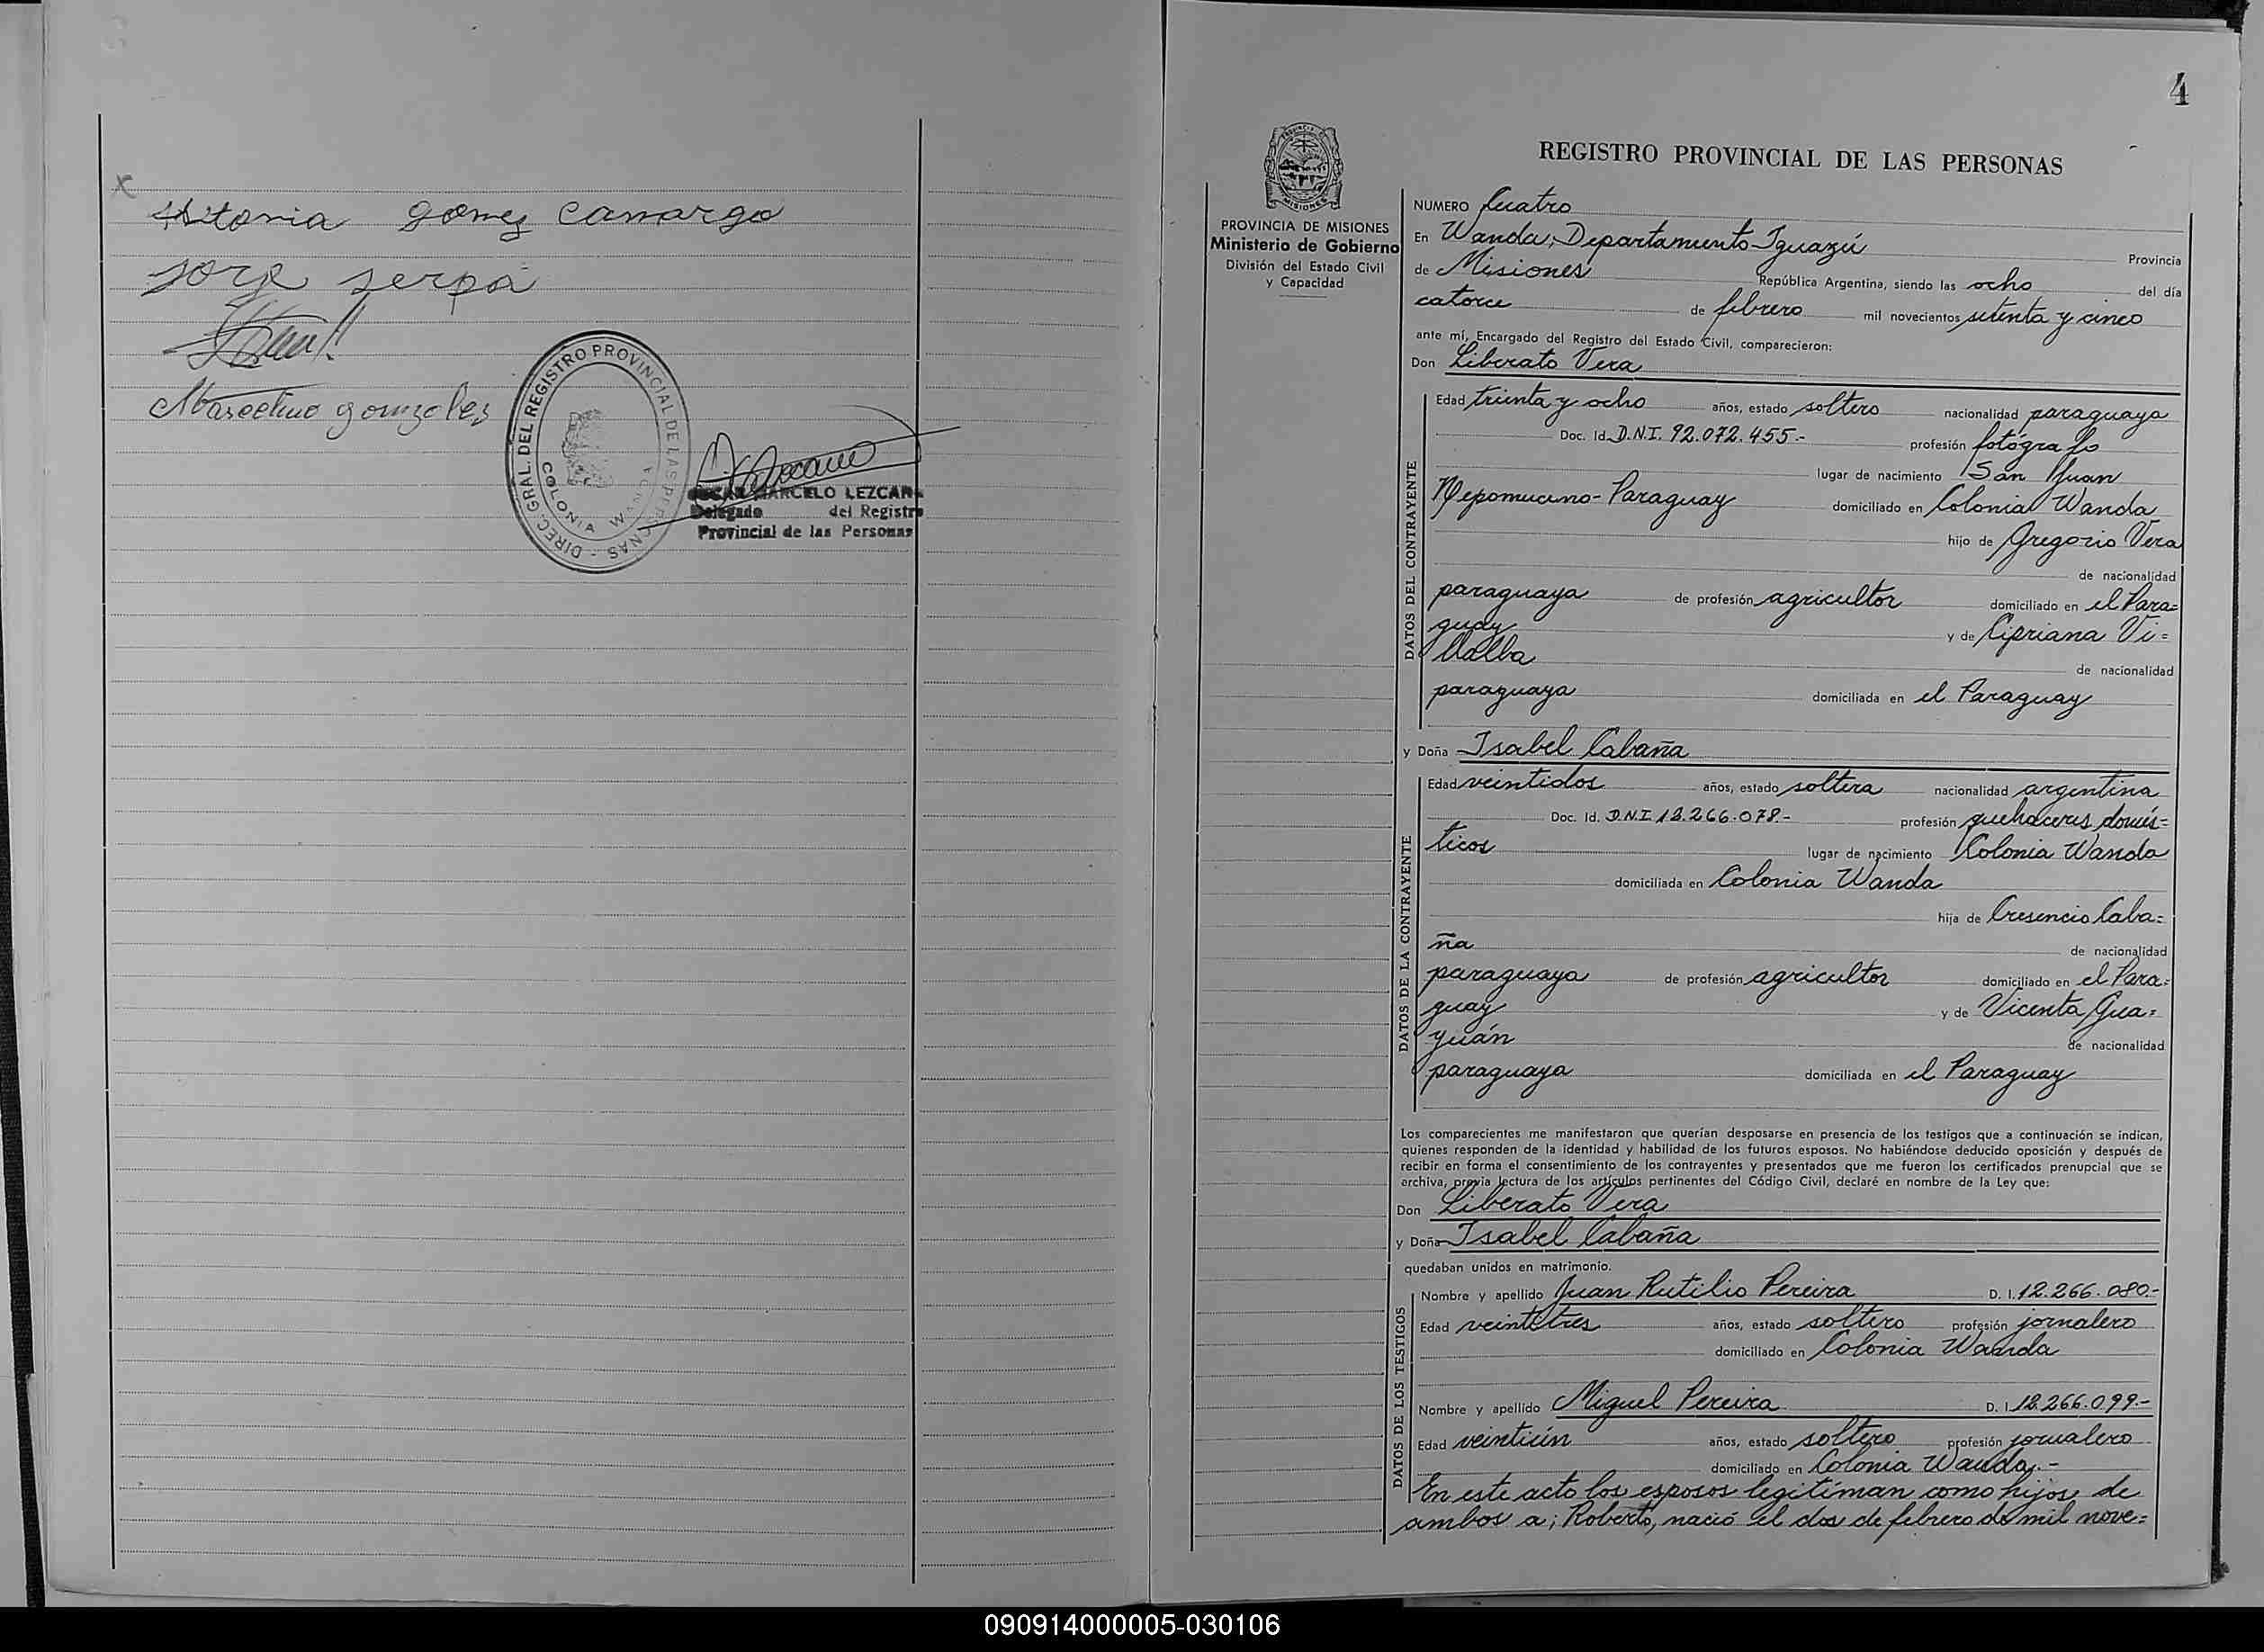 Gomez Camargo
Jorge Serpa
Marcelino Gonzales
DIREC. GRAL. DEL REGISTRO PROVINCIAL DE LAS PERSONAS -
COLONIA WANDA
MARCELO LEZCAN
Delegado del Registro
Provincial de las Personas
4
REGISTRO PROVINCIAL DE LAS PERSONAS
PROVINCIA DE MISIONES
Ministerio de Gobierno
División del Estado Civil
y Capacidad
NUMERO Cuatro
En Wanda, Departamento Iguazú Provincia
de Misiones República Argentina, siendo las ocho del día
catorce de febrero mil novecientos setenta y cinco
ante mí, Encargado del Registro del Estado Civil, comparecieron:
Don Liberato Vera
DATOS DEL CONTRAYENTE
Edad treinta y ocho años, estado soltero nacionalidad paraguaya
Doc. Id. D.N.I. 92.072.455.- profesión fotógrafo
lugar de nacimiento San Juan
Nepomuceno-Paraguay domiciliado en Colonia Wanda
hijo de Gregorio Vera
de nacionalidad
paraguaya de profesión agricultor domiciliado en el Para=
guay y de Cipriana Vi=
llalba de nacionalidad
paraguaya domiciliada en el Paraguay
y Doña Isabel Cabaña
DATOS DE LA CONTRAYENTE
Edad veintidos años, estado soltera nacionalidad argentina
Doc. Id. D.N.I. 12.266.078.- profesión quehaceres domés=
ticos lugar de nacimiento Colonia Wanda
domiciliada en Colonia Wanda
hija de Cresencio Caba=
ña de nacionalidad
paraguaya de profesión agricultor domiciliado en el Para=
guay y de Vicenta Gua=
yuán de nacionalidad
paraguaya domiciliada en el Paraguay
Los comparecientes me manifestaron que querían desposarse en presencia de los testigos que a continuación se indican,
quienes responden de la identidad y habilidad de los futuros esposos. No habiéndose deducido oposición y después de
recibir en forma el consentimiento de los contrayentes y presentados que me fueron los certificados prenupcial que se
archiva, previa lectura de los artículos pertinentes del Código Civil, declaré en nombre de la Ley que:
Don Liberato Vera
y Doña Isabel Cabaña
quedaban unidos en matrimonio.
DATOS DE LOS TESTIGOS
Nombre y apellido Juan Rutilio Pereira D. I. 12.266.080.-
Edad veintitres años, estado soltero profesión jornalero
domiciliado en Colonia Wanda
Nombre y apellido Miguel Pereira D. I. 12.266.099.-
Edad veintiún años, estado soltero profesión jornalero
domiciliado en Colonia Wanda.-
En este acto los esposos legitiman como hijos de
ambos a; Roberto, nació el dos de febrero de mil nove=
090914000005-030106